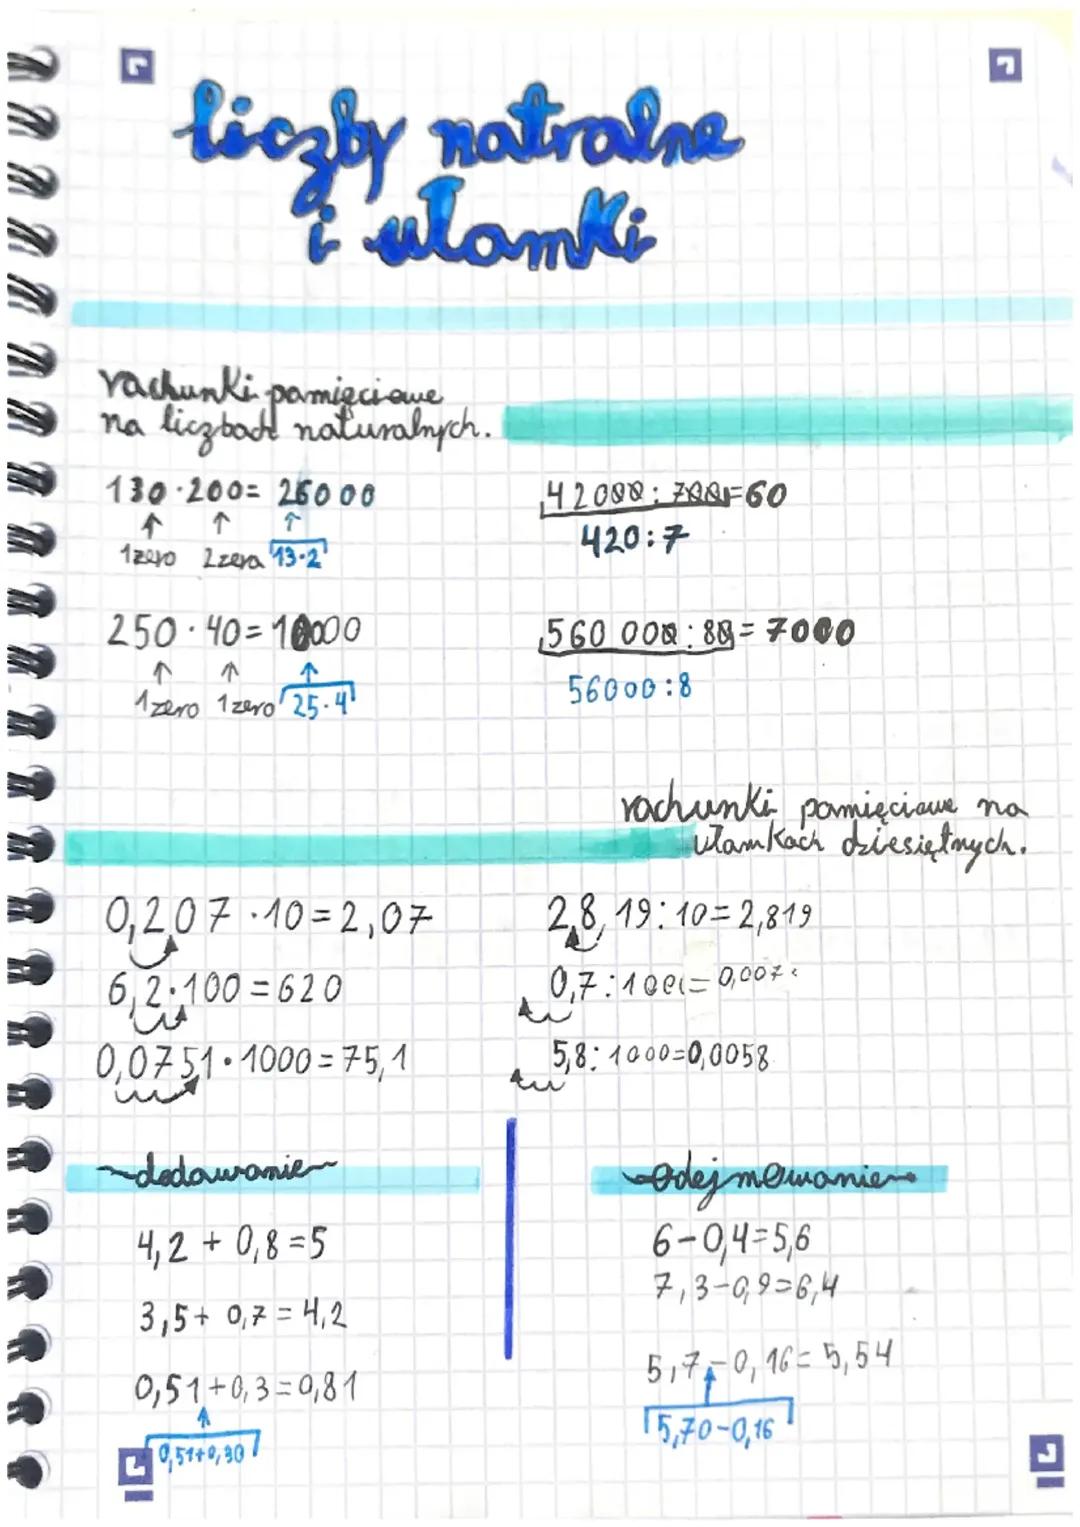 liczby natralne
i ułamki
rachunki pamięciowe
na liczbach naturalnych.
130·200= 26000
1zero 2zera 13·2
250·40=10000
1zero 1zero 25·4
42000:700=60
420:7
560 000:80=7000
56000:8
rachunki pamięciowe na
ułamkach dziesiętnych.
0,207·10=2,07
6,2·100=620
0,0751·1000=75,1
28,19:10=2,819
0,7:100=0,007
5,8:1000=0,0058
dodawanie
4,2+0,8=5
3,5+0,7=4,2
0,51+0,3=0,81
0,51+0,30
odejmowanie
6-0,4=5,6
7,3-0,9=6,4
5,7-0,16=5,54
5,70-0,16